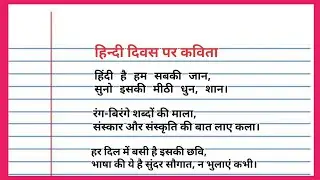 हिन्दी दिवस पर कविता
हिंदी है हम सबकी जान,
सुनो इसकी मीठी धुन, शान।
रंग-बिरंगे शब्दों की माला,
संस्कार और संस्कृति की बात लाए कला।
हर दिल में बसी है इसकी छवि,
भाषा की ये है सुंदर सौगात, न भुलाएं कभी।